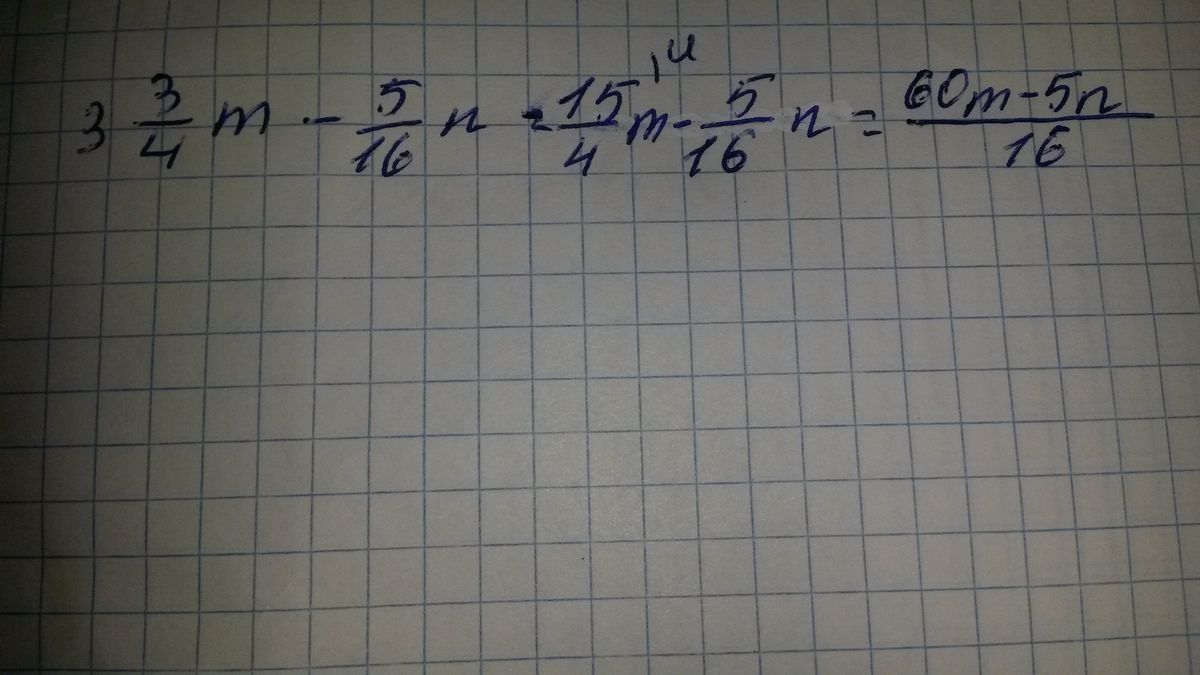 3 3/4 m - 5/16 n = 15/4 m - 5/16 n = 60m-5n/16